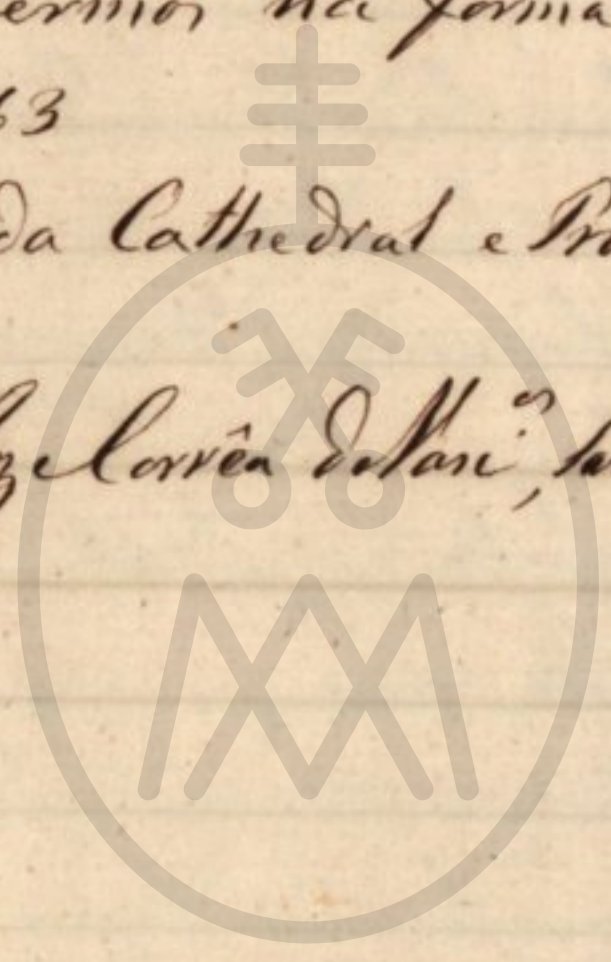 ermos na forma
63
da Cathedral e
e Corrêa do Nasc.to,